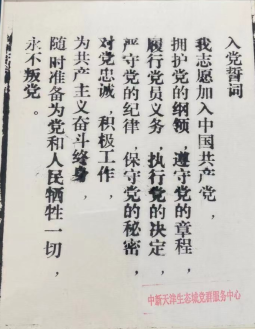 入党誓词
我志愿加入中国共产党，
拥护党的纲领，遵守党的章程，
履行党员义务，执行党的决定，
严守党的纪律，保守党的秘密，
对党忠诚，积极工作，
为共产主义奋斗终身，
随时准备为党和人民牺牲一切，
永不叛党。
中新天津生态城党群服务中心